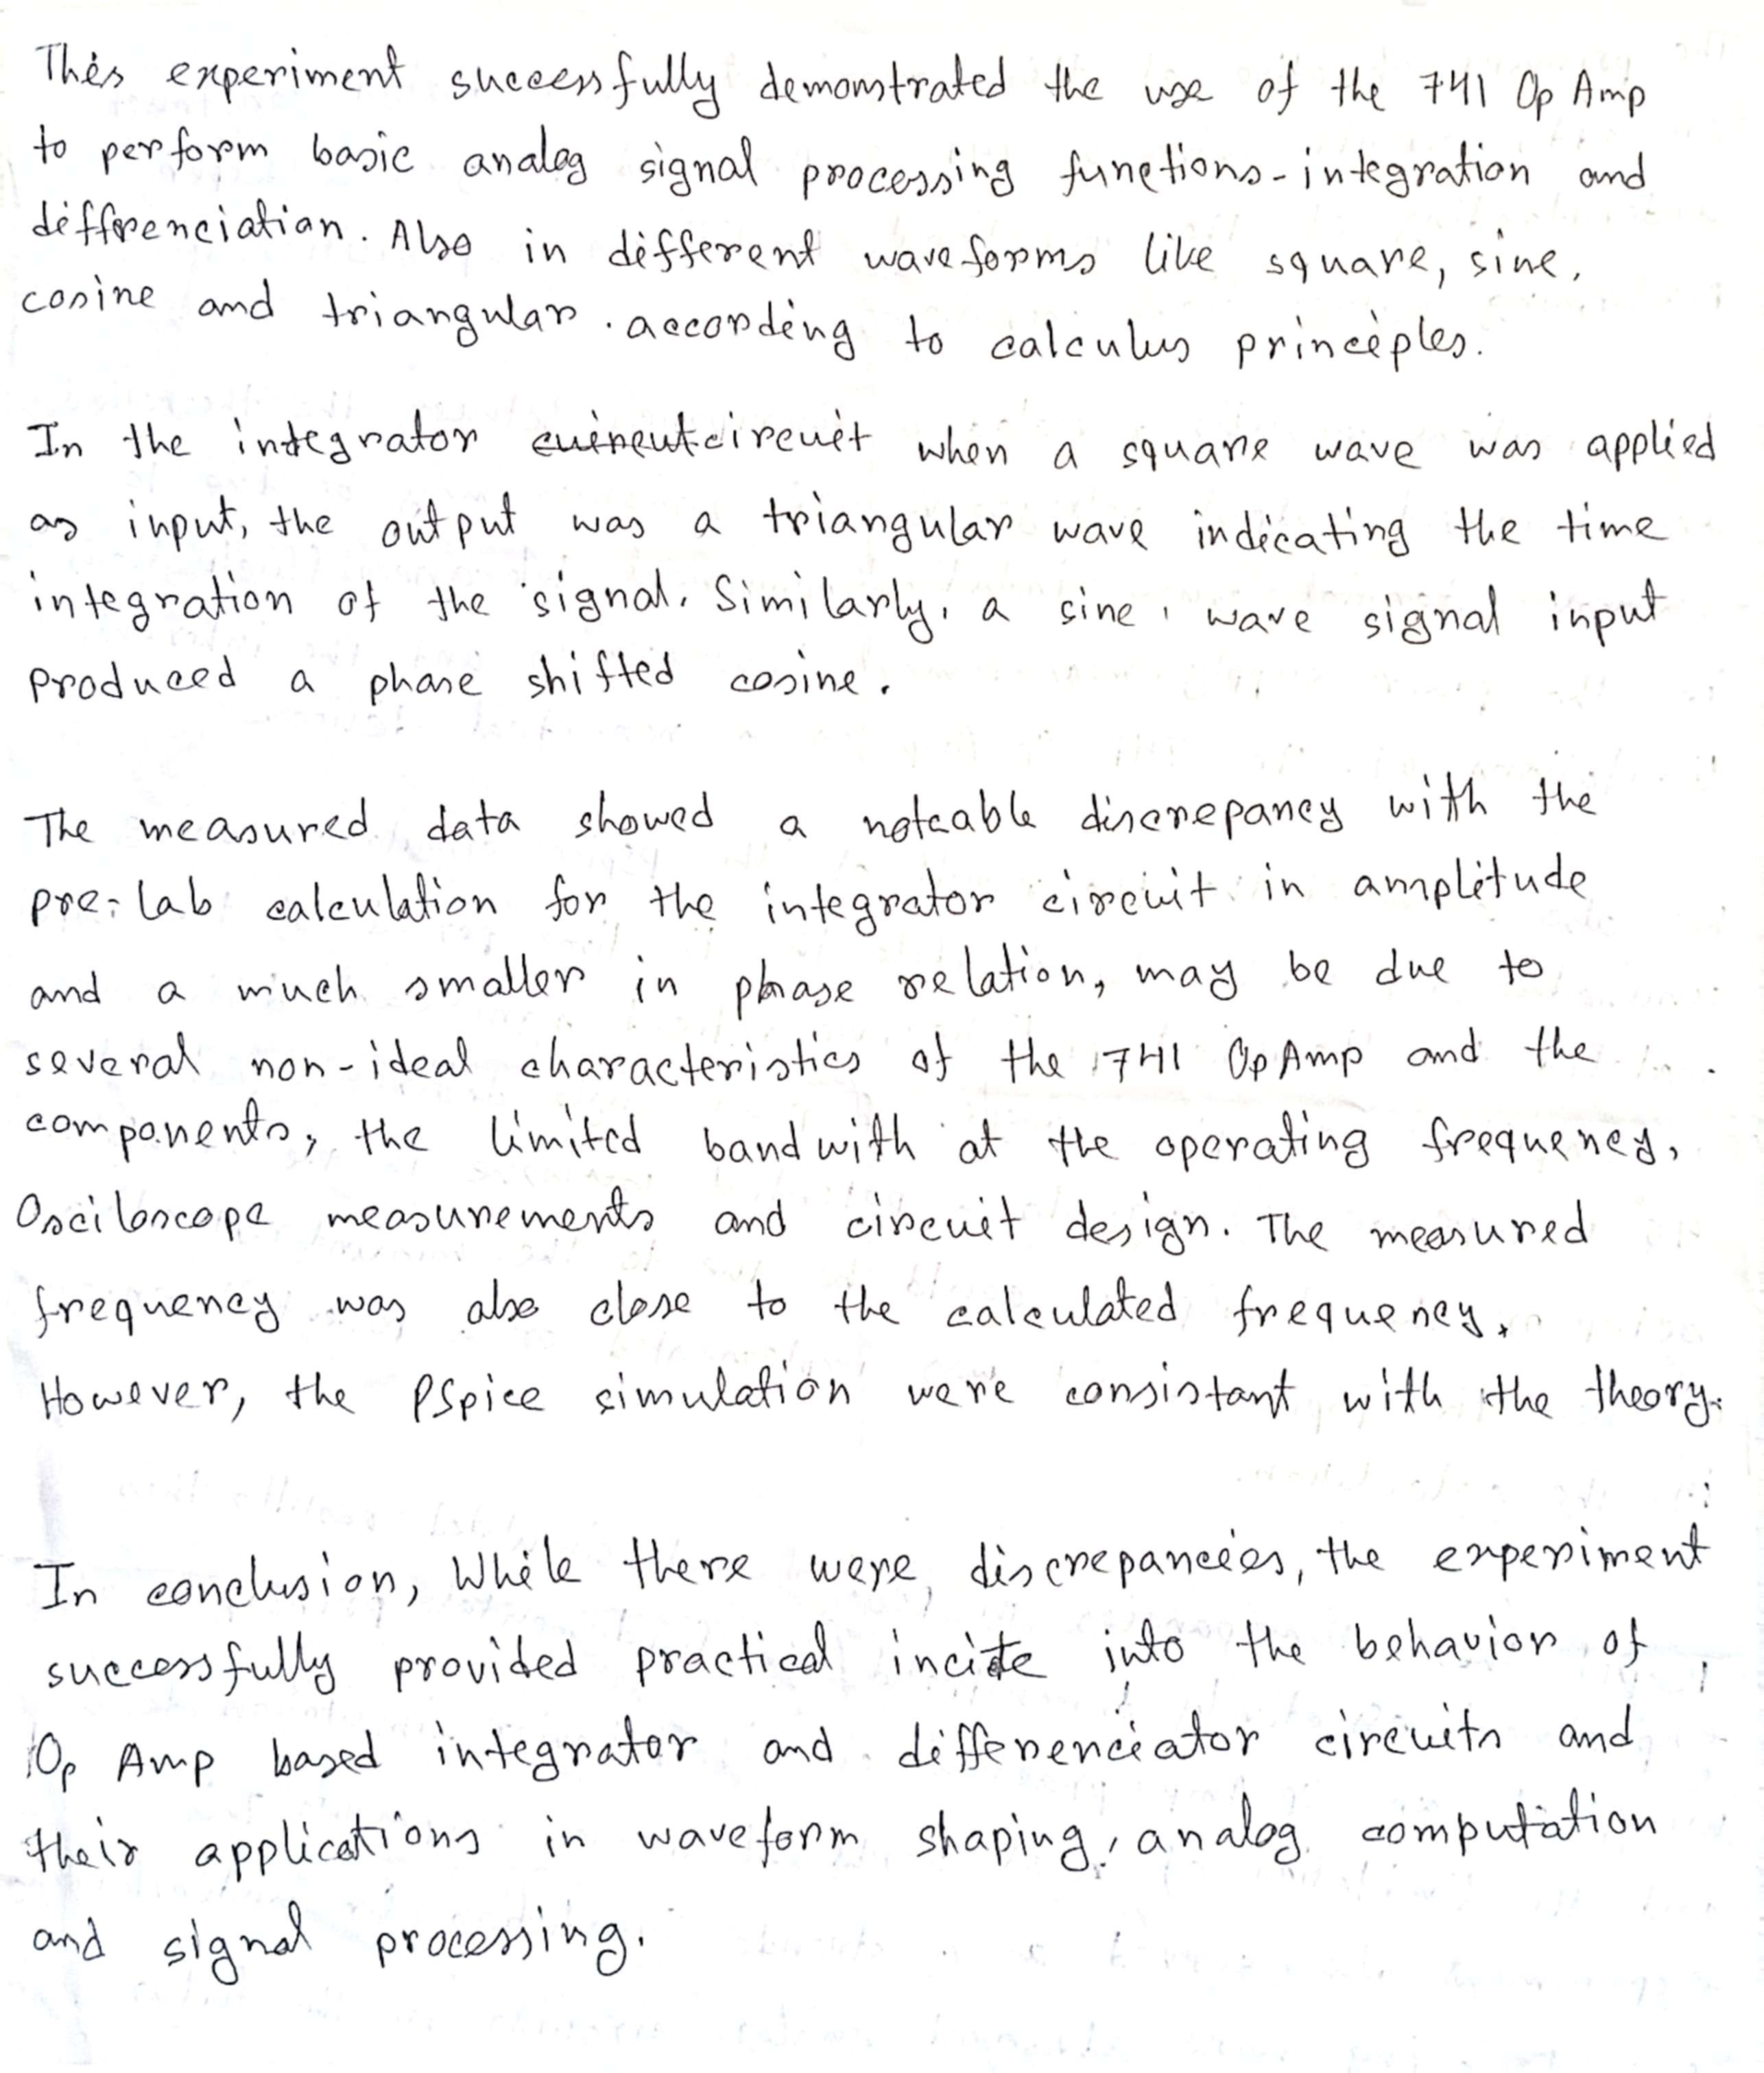 This experiment successfully demonstrated the use of the 741 Op Amp
to perform basic analog signal processing functions - integration and
diffrenciation. Also in different waveforms like square, sine,
cosine and triangular. according to calculus principles.
In the integrator cuircut circuit when a square wave was applied
as input, the output was a triangular wave indicating the time
integration of the signal. Similarly, a sine wave signal input
produced a phase shifted cosine.
The measured data showed a noteable discrepancy with the
pre-lab calculation for the integrator circuit in amplitude
and a much smaller in phase relation, may be due to
several non-ideal characteristics of the 741 Op Amp and the
components, the limited bandwith at the operating frequency,
Osciloscope measurements and circuit design. The measured
frequency was also close to the calculated frequency.
However, the PSpice simulation were consistant with the theory.
In conclusion, While there were discrepancies, the experiment
successfully provided practical incite into the behavior of
Op Amp based integrator and differenciator circuits and
their applications in waveform shaping, analog computation
and signal processing.